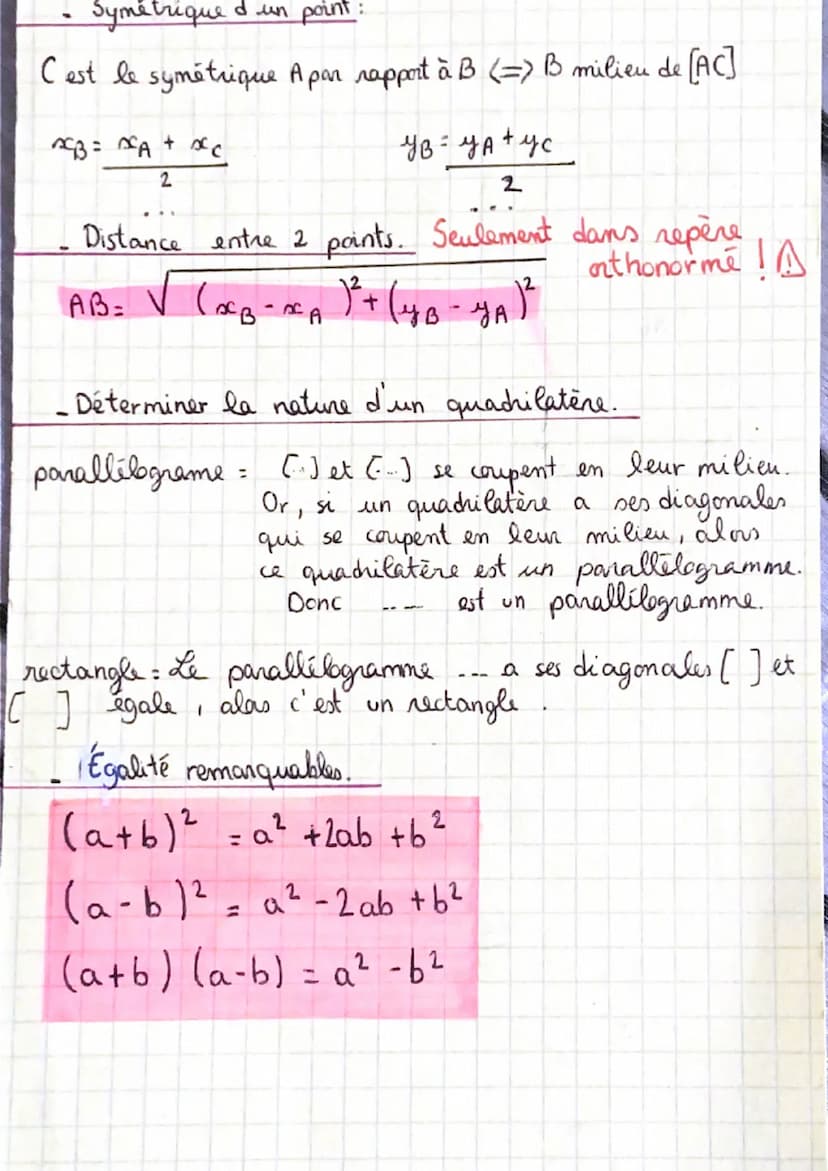 - Symétrique d'un point :
C est le symétrique A par rapport à B <=> B milieu de [AC]
xB = xA + xC / 2
yB = yA + yC / 2
... ...
- Distance entre 2 points. Seulement dans repère
orthonormé ! ⚠
AB = √(xB - xA)² + (yB - yA)²
- Déterminer la nature d'un quadrilatère.
parallélograme = [..] et [...] se coupent en leur milieu.
Or, si un quadrilatère a ses diagonales
qui se coupent en leur milieu, alors
ce quadrilatère est un parallélogramme.
Donc .... est un parallélogramme.
rectangle = Le parallélogramme ... a ses diagonales [ ] et
[ ] égale, alors c'est un rectangle.
- Égalité remarquables.
(a+b)² = a² + 2ab + b²
(a-b)² = a² - 2ab + b²
(a+b) (a-b) = a² - b²